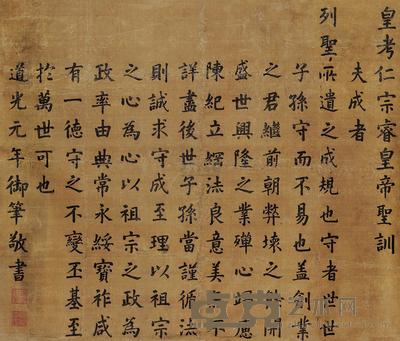 皇考仁宗睿皇帝聖訓
夫成者
列聖所遺之成規也守者世世
子孫守而不易也蓋創業
之君繼前朝弊壞之餘開
盛世興隆之業殫心
陳紀立綱法良意美不
詳盡後世子孫當謹循法
則誠求守成至理以祖宗
之心為心以祖宗之政為
政率由典常永綏寶祚咸
有一德守之不變丕基至
於萬世可也
道光元年御筆敬書